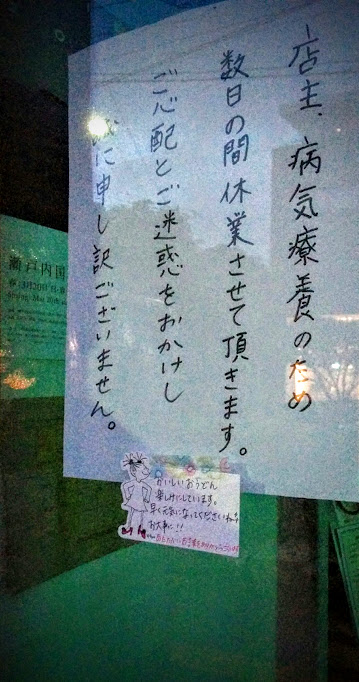 店主、病気療養のため
数日の間休業させて頂きます。
ご心配とご迷惑をおかけし
に申し訳ございません。
おいしいおうどん
楽しみにしています。
早く元気になってくださいね
お大事に!!
瀬戸内国
春